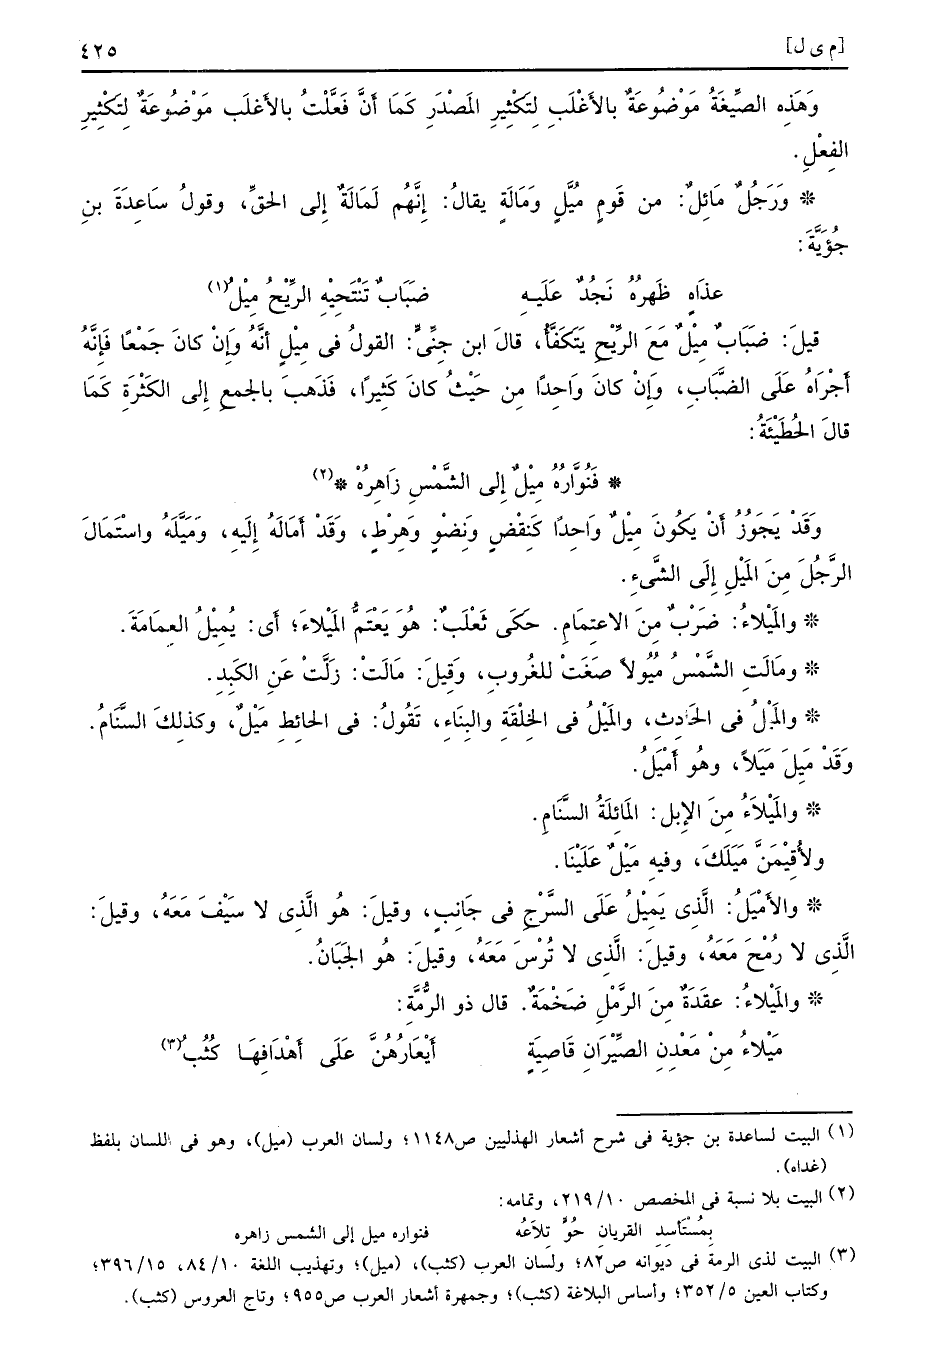 [م ى ل] ٤٢٥
وَهَذِه الصِّيغَةُ مَوْضُوعَةٌ بالأَغْلَبِ لِتَكْثِيرِ المَصْدَرِ كَمَا أَنَّ فَعَّلْتُ بالأَغلَب مَوْضُوعَةٌ لِتَكْثِيرِ
الفِعْلِ.
* وَرَجُلٌ مَائِلٌ: من قَومٍ مُيَّلٍ وَمَالَةٍ يقالُ: إِنَّهُم لَمالَةٌ إلى الحقِّ، وقولُ سَاعِدَةَ بنِ
جُؤَيَّةَ:
عذَاهِ ظَهرُهُ نَجُدٌ عَلَيـهِ ضَبَابٌ تَنْتَحِيْهِ الرِّيْحُ مِيْلُ(١)
قيلَ: ضَبَابٌ مِيْلٌ مَعَ الرِّيْحِ يَتَكَفَّأُ، قالَ ابن جِنِّىٍّ: القولُ فى مِيْلٍ أنَّهُ وَإِنْ كانَ جَمْعًا فَإِنَّهُ
أجْرَاهُ عَلَى الضَّبَابِ، وَإِنْ كانَ وَاحِدًا مِن حَيْثُ كانَ كَثِيرًا، فَذَهبَ بالجمعِ إلى الكَثْرَةِ كَمَا
قالَ الحُطَيْئَةُ:
* فَنُوَّارُهُ مِيْلٌ إلى الشَّمْسِ زَاهِرُهُ *(٢)
وَقَدْ يَجُوزُ أَنْ يَكُونَ مِيْلٌ وَاحِدًا كَنِقْضٍ وَنِضْوٍ وَهِرْطٍ، وَقَدْ أَمَالَهُ إِلَيهِ، وَمَيَّلَهُ واسْتَمَالَ
الرَّجُلَ مِنَ المَيْلِ إِلَى الشَّىءِ.
* والمَيْلاءُ: ضَرْبٌ مِنَ الاعتِمَامِ. حكَى ثَعْلَبٌ: هُوَ يَعْتَمُّ المَيْلاءَ؛ أى: يُمِيْلُ العِمَامَةَ.
* ومَالَتِ الشَّمْسُ مُيُولاً صَغَتْ للغُروبِ، وَقِيلَ: مَالَتْ: زلَّتْ عَنِ الكَبِدِ.
* والمَيْلُ فى الحَادِثِ، والمَيَلُ فى الخِلْقَةِ والبِنَاءِ، تَقُولُ: فى الحائطِ مَيَلٌ، وكذلِكَ السَّنَامُ.
وَقَدْ مَيِلَ مَيَلاً، وهُو أَمْيَلُ.
* والمَيْلاَءُ مِنَ الإبلِ: المَائِلَةُ السَّنَامِ.
ولأُقِيْمَنَّ مَيَلَكَ، وفيهِ مَيْلٌ عَلَيْنَا.
* والأَمْيَلُ: الَّذِى يَمِيْلُ عَلَى السَّرْجِ فى جَانِبٍ، وقيلَ: هُو الَّذِى لا سَيْفَ مَعَهُ، وقيلَ:
الَّذِى لا رُمْحَ مَعَهُ، وقيلَ: الَّذِى لا تُرْسَ مَعَهُ، وقيلَ: هُو الجَبَانُ.
* والمَيْلاءُ: عقَدَةٌ مِنَ الرَّمْلِ ضَخْمَةٌ. قال ذو الرُّمَّةِ:
مَيْلاءُ مِنْ مَعْدِنِ الصِّيْرَانِ قَاصِيَةٍ أَبْعَارُهُنَّ عَلَى أَهْدَافِهَا كُثُبُ(٣)
(١) البيت لساعدة بن جؤية فى شرح أشعار الهذليين ص١١٤٨؛ ولسان العرب (ميل)، وهو فى اللسان بلفظ
(غداه).
(٢) البيت بلا نسبة فى المخصص ٢١٩/١٠، وتمامه:
بِمُسْتَأسِدِ القريان حُوٌّ تِلاَعُه فنواره ميل إلى الشمس زاهره
(٣) البيت لذى الرمة فى ديوانه ص٨٢؛ ولسان العرب (كثب)، (ميل)؛ وتهذيب اللغة ٨٤/١٠، ٣٩٦/١٥؛
وكتاب العين ٣٥٢/٥؛ وأساس البلاغة (كثب)؛ وجمهرة أشعار العرب ص٩٥٥؛ وتاج العروس (كثب).